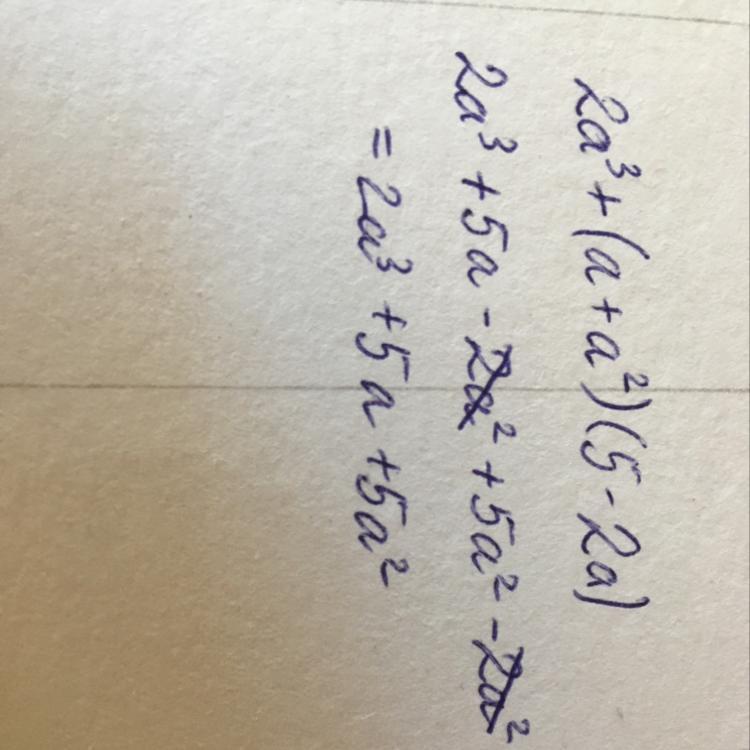 2a³ + (a + a²)(5 - 2a)
2a³ + 5a - 2a² + 5a² - 2a²
= 2a³ + 5a + 5a²